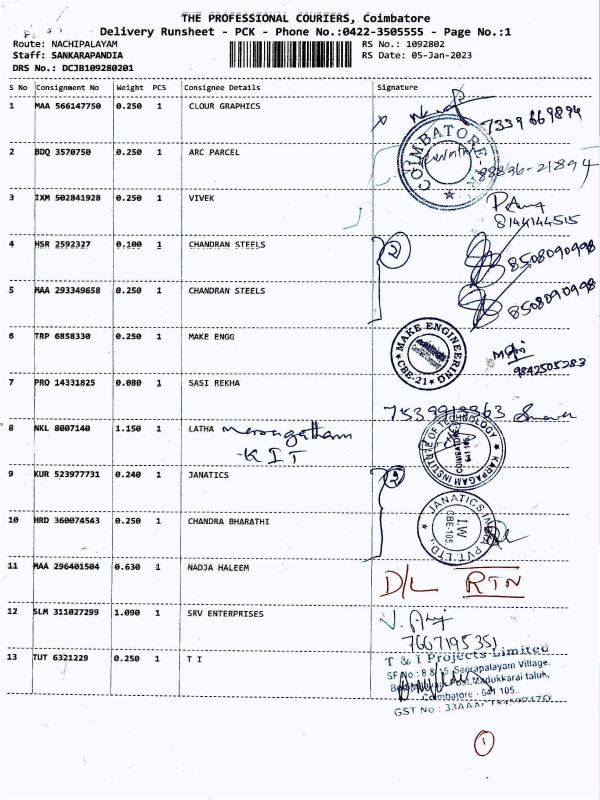 THE PROFESSIONAL COURIERS, Coimbatore
Delivery Runsheet - PCK - Phone No.:0422-3505555 - Page No.:1
Route: NACHIPALAYAM RS No.: 1092802
Staff: SANKARAPANDIA RS Date: 05-Jan-2023
DRS No.: DCJB109280201
S No Consignment No Weight PCS Consignee Details Signature
1 MAA 566147750 0.250 1 CLOUR GRAPHICS
7339669894
2 BDQ 3570750 0.250 1 ARC PARCEL COIMBATORE
88836-21894
3 IXM 502841928 0.250 1 VIVEK
8144144515
4 HSR 2592327 0.100 1 CHANDRAN STEELS 2 8508090998
5 MAA 293349658 0.250 1 CHANDRAN STEELS 8508090998
6 TRP 6858330 0.250 1 MAKE ENGG MAKE ENGINEERING CBE-21
9842505283
7 PRO 14331825 0.080 1 SASI REKHA
8 NKL 8007140 1.150 1 LATHA
-KIT
KARPAGAM INSTITUTE OF TECHNOLOGY COIMBATORE 641 105
9 KUR 523977731 0.240 1 JANATICS 2
10 HRD 360074543 0.250 1 CHANDRA BHARATHI JANATICS INDIA PVT. LTD. I.W CBE-105
11 MAA 296401504 0.630 1 NADJA HALEEM D/L RTN
12 SLM 311027299 1.090 1 SRV ENTERPRISES
7667195351
13 TUT 6321229 0.250 1 T I T & I Projects Limited
Village.
Madukkarai taluk,
Coimbatore - 641 105.
GST No :
1